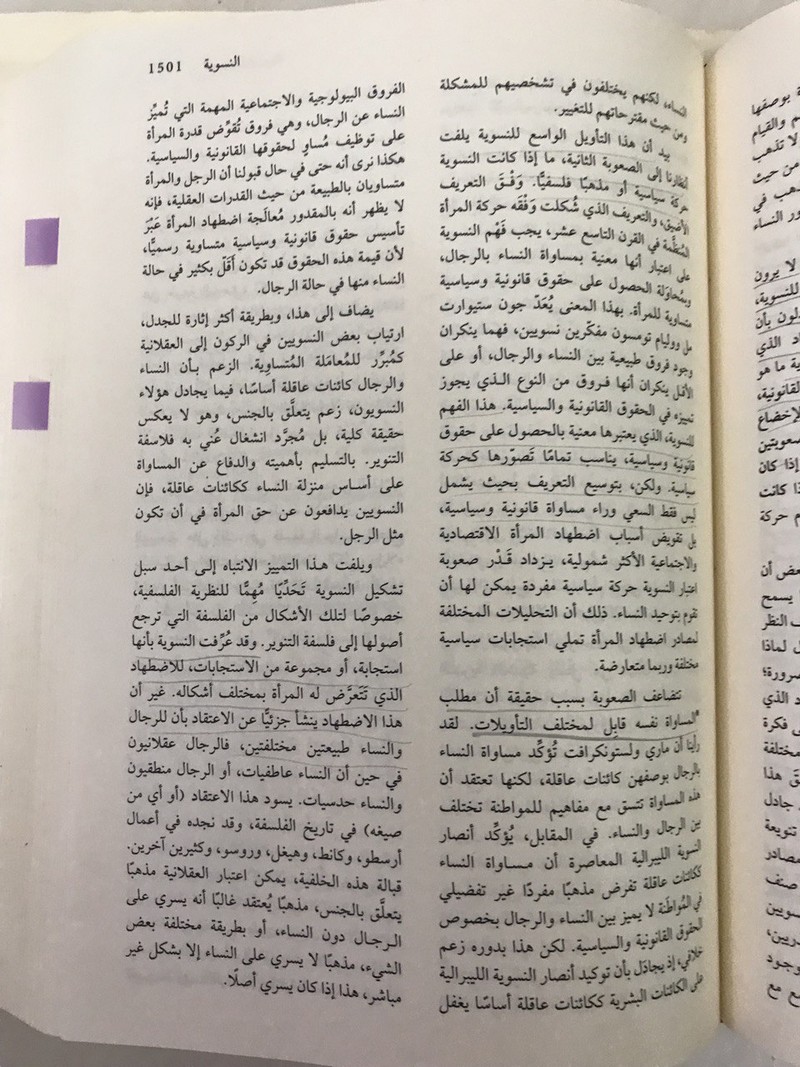 النسوية 1501
النساء، لكنهم يختلفون في تشخصيهم للمشكلة
ومن حيث مقترحاتهم للتغيير.
بيد أن هذا التأويل الواسع للنسوية يلفت
أنظارنا إلى الصعوبة الثانية، ما إذا كانت النسوية
حركة سياسية أو مذهبًا فلسفيًّا. وَفْقَ التعريف
الأضيق، والتعريف الذي شُكلت وَفْقَه حركة المرأة
المُنظَّمة في القرن التاسع عشر، يجب فَهْم النسوية
على اعتبار أنها معنية بمساواة النساء بالرجال،
وبمُحاوَلة الحصول على حقوق قانونية وسياسية
متساوية للمرأة. بهذا المعنى يُعَدّ جون ستيوارت
مل ووليام تومسون مفكّرين نسويين، فهما ينكران
وجود فروق طبيعية بين النساء والرجال، أو على
الأقل ينكران أنها فروق من النوع الذي يجوز
تمييزه في الحقوق القانونية والسياسية. هذا الفهم
للنسوية، الذي يعتبرها معنية بالحصول على حقوق
قانونية وسياسية، يناسب تمامًا تَصوّرها كحركة
سياسية. ولكن، بتوسيع التعريف بحيث يشمل
ليس فقط السعي وراء مساواة قانونية وسياسية،
بل تقويض أسباب اضطهاد المرأة الاقتصادية
والاجتماعية الأكثر شمولية، يزداد قَدْر صعوبة
اعتبار النسوية حركة سياسية مفردة يمكن لها أن
تقوم بتوحيد النساء. ذلك أن التحليلات المختلفة
لمصادر اضطهاد المرأة تملي استجابات سياسية
مختلفة وربما متعارضة.
تتضاعف الصعوبة بسبب حقيقة أن مطلب
المساواة نفسه قابِل لمختلف التأويلات. لقد
رأينا أن ماري ولستونكرافت تُؤكِّد مساواة النساء
بالرجال بوصفهن كائنات عاقلة، لكنها تعتقد أن
هذه المساواة تتسق مع مفاهيم للمواطنة تختلف
بين الرجال والنساء. في المقابل، يُؤكِّد أنصار
النسوية الليبرالية المعاصرة أن مساواة النساء
ككائنات عاقلة تفرض مذهبًا مفردًا غير تفضيلي
في المُواطَنة لا يميز بين النساء والرجال بخصوص
الحقوق القانونية والسياسية. لكن هذا بدوره زعم
خلافي، إذ يجادَل بأن توكيد أنصار النسوية الليبرالية
على الكائنات البشرية ككائنات عاقلة أساسًا يغفل
الفروق البيولوجية والاجتماعية المهمة التي تُميِّز
النساء عن الرجال، وهي فروق تُقوِّض قدرة المرأة
على توظيف مُساوٍ لحقوقها القانونية والسياسية.
هكذا نرى أنه حتى في حال قبولنا أن الرجل والمرأة
متساويان بالطبيعة من حيث القدرات العقلية، فإنه
لا يظهر أنه بالمقدور مُعالَجة اضطهاد المرأة عَبْرَ
تأسيس حقوق قانونية وسياسية متساوية رسميًّا،
لأن قيمة هذه الحقوق قد تكون أقَلّ بكثير في حالة
النساء منها في حالة الرجال.
يضاف إلى هذا، وبطريقة أكثر إثارة للجدل،
ارتياب بعض النسويين في الركون إلى العقلانية
كمُبرِّر للمُعامَلة المُتساوِية. الزعم بأن النساء
والرجال كائنات عاقلة أساسًا، فيما يجادل هؤلاء
النسويون، زعم يتعلَّق بالجنس، وهو لا يعكس
حقيقة كلية، بل مُجرَّد انشغال عُني به فلاسفة
التنوير. بالتسليم بأهميته والدفاع عن المساواة
على أساس منزلة النساء ككائنات عاقلة، فإن
النسويين يدافعون عن حق المرأة في أن تكون
مثل الرجل.
ويلفت هذا التمييز الانتباه إلى أحد سبل
تشكيل النسوية تَحَدِّيًا مُهِمًّا للنظرية الفلسفية،
خصوصًا لتلك الأشكال من الفلسفة التي ترجع
أصولها إلى فلسفة التنوير. وقد عُرِّفت النسوية بأنها
استجابة، أو مجموعة من الاستجابات، للاضطهاد
الذي تَتَعرَّض له المرأة بمختلف أشكاله. غير أن
هذا الاضطهاد ينشأ جزئيًّا عن الاعتقاد بأن للرجال
والنساء طبيعتين مختلفتين، فالرجال عقلانيون
في حين أن النساء عاطفيات، أو الرجال منطقيون
والنساء حدسيات. يسود هذا الاعتقاد (أو أي من
صيغه) في تاريخ الفلسفة، وقد نجده في أعمال
أرسطو، وكانط، وهيغل، وروسو، وكثيرين آخرين.
قبالة هذه الخلفية، يمكن اعتبار العقلانية مذهبًا
يتعلَّق بالجنس، مذهبًا يُعتقد غالبًا أنه يسري على
الرجال دون النساء، أو بطريقة مختلفة بعض
الشيء، مذهبًا لا يسري على النساء إلا بشكل غير
مباشر، هذا إذا كان يسري أصلًا.